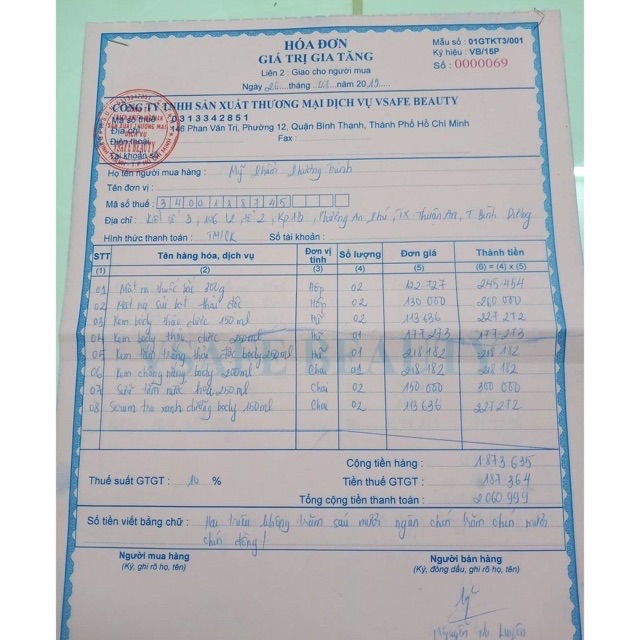 HÓA ĐƠN
GIÁ TRỊ GIA TĂNG
Liên 2 : Giao cho người mua
Ngày 26 tháng năm 2019
Mẫu số : 01GTKT3/001
Ký hiệu : VB/15P
Số : 0000069
CÔNG TY TNHH SẢN XUẤT THƯƠNG MẠI DỊCH VỤ VSAFE BEAUTY
Mã số thuế : 0313342851
Địa chỉ : 146 Phan Văn Trị, Phường 12, Quận Bình Thạnh, Thành Phố Hồ Chí Minh
Điện thoại : Fax :
Tài khoản số :
VSAFE BEAUTY
Họ tên người mua hàng : Mỹ Phẩm Phương Trinh
Tên đơn vị :
Mã số thuế : 3400138745
Địa chỉ : số 3, tổ 2, Kp 1B, Phường An Phú, TX Thuận An, T Bình Dương
Hình thức thanh toán : TM/CK Số tài khoản :
STT Tên hàng hóa, dịch vụ Đơn vị tính Số lượng Đơn giá Thành tiền
(1) (2) (3) (4) (5) (6) = (4) x (5)
01 Mặt nạ thuốc bắc 300g Hộp 02 122 727 245 454
02 Mặt nạ sủi bọt thải độc Hộp 02 130 000 260 000
03 Kem body thảo dược 150ml Hũ 02 113 636 227 272
04 Kem body thảo dược 250ml Hũ 01 177 273 177 273
05 Kem trắng body 250ml Hũ 01 218 182 218 182
06 Kem chống nắng body 200ml Chai 01 218 182 218 182
07 Sữa tắm nước hoa 250ml Chai 02 150 000 300 000
08 Serum trà xanh dưỡng body 150ml Chai 02 113 636 227 272
VSAFE BEAUTY
Cộng tiền hàng : 1 873 635
Thuế suất GTGT : 10 % Tiền thuế GTGT : 187 364
Tổng cộng tiền thanh toán : 2 060 999
Số tiền viết bằng chữ : Hai triệu không trăm sáu mươi ngàn chín trăm chín mươi
chín đồng!
Người mua hàng Người bán hàng
(Ký, ghi rõ họ, tên) (Ký, đóng dấu, ghi rõ họ, tên)
Nguyễn